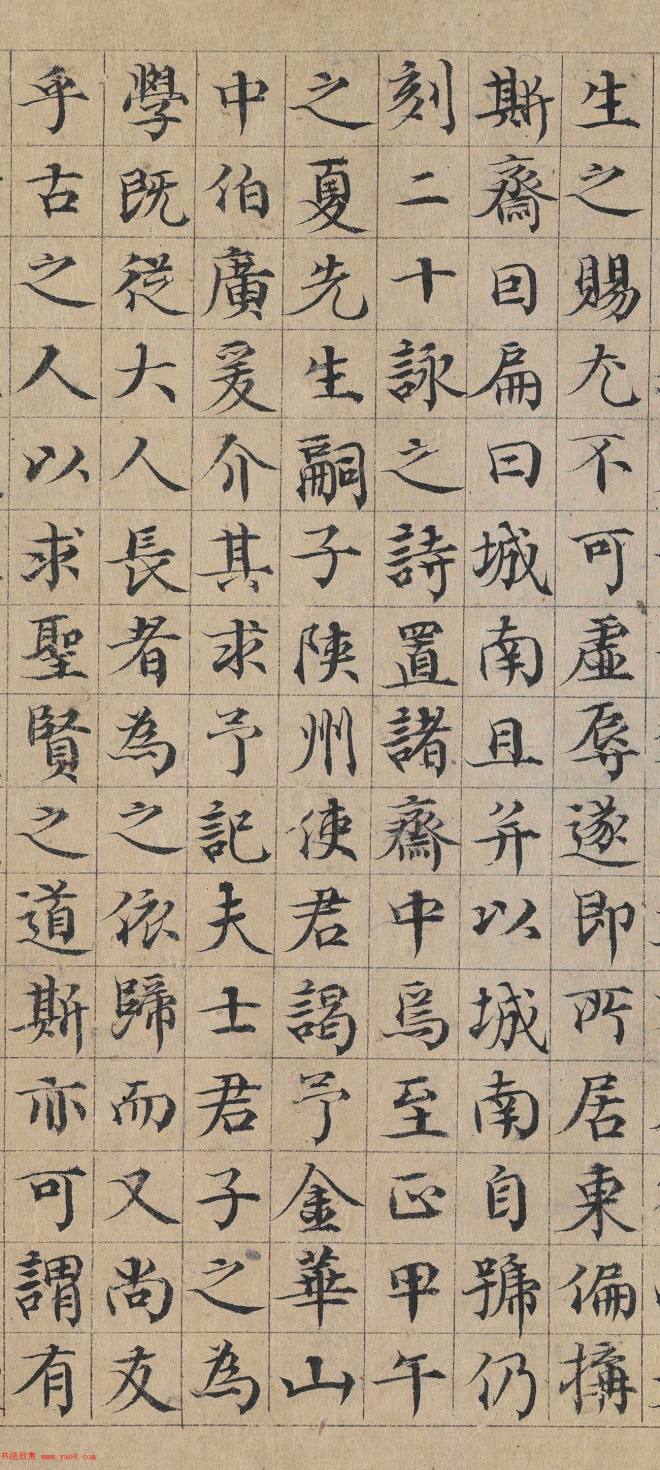 生之賜尤不可虛辱遂即所居東偏搆
斯齋因扁曰城南且并以城南自號仍
刻二十詠之詩置諸齋中焉至正甲午
之夏先生嗣子陝州使君謁予金華山
中伯廣爰介其求予記夫士君子之為
學既從大人長者為之依歸而又尚友
乎古之人以求聖賢之道斯亦可謂有
书法欣赏 www.yac8.com